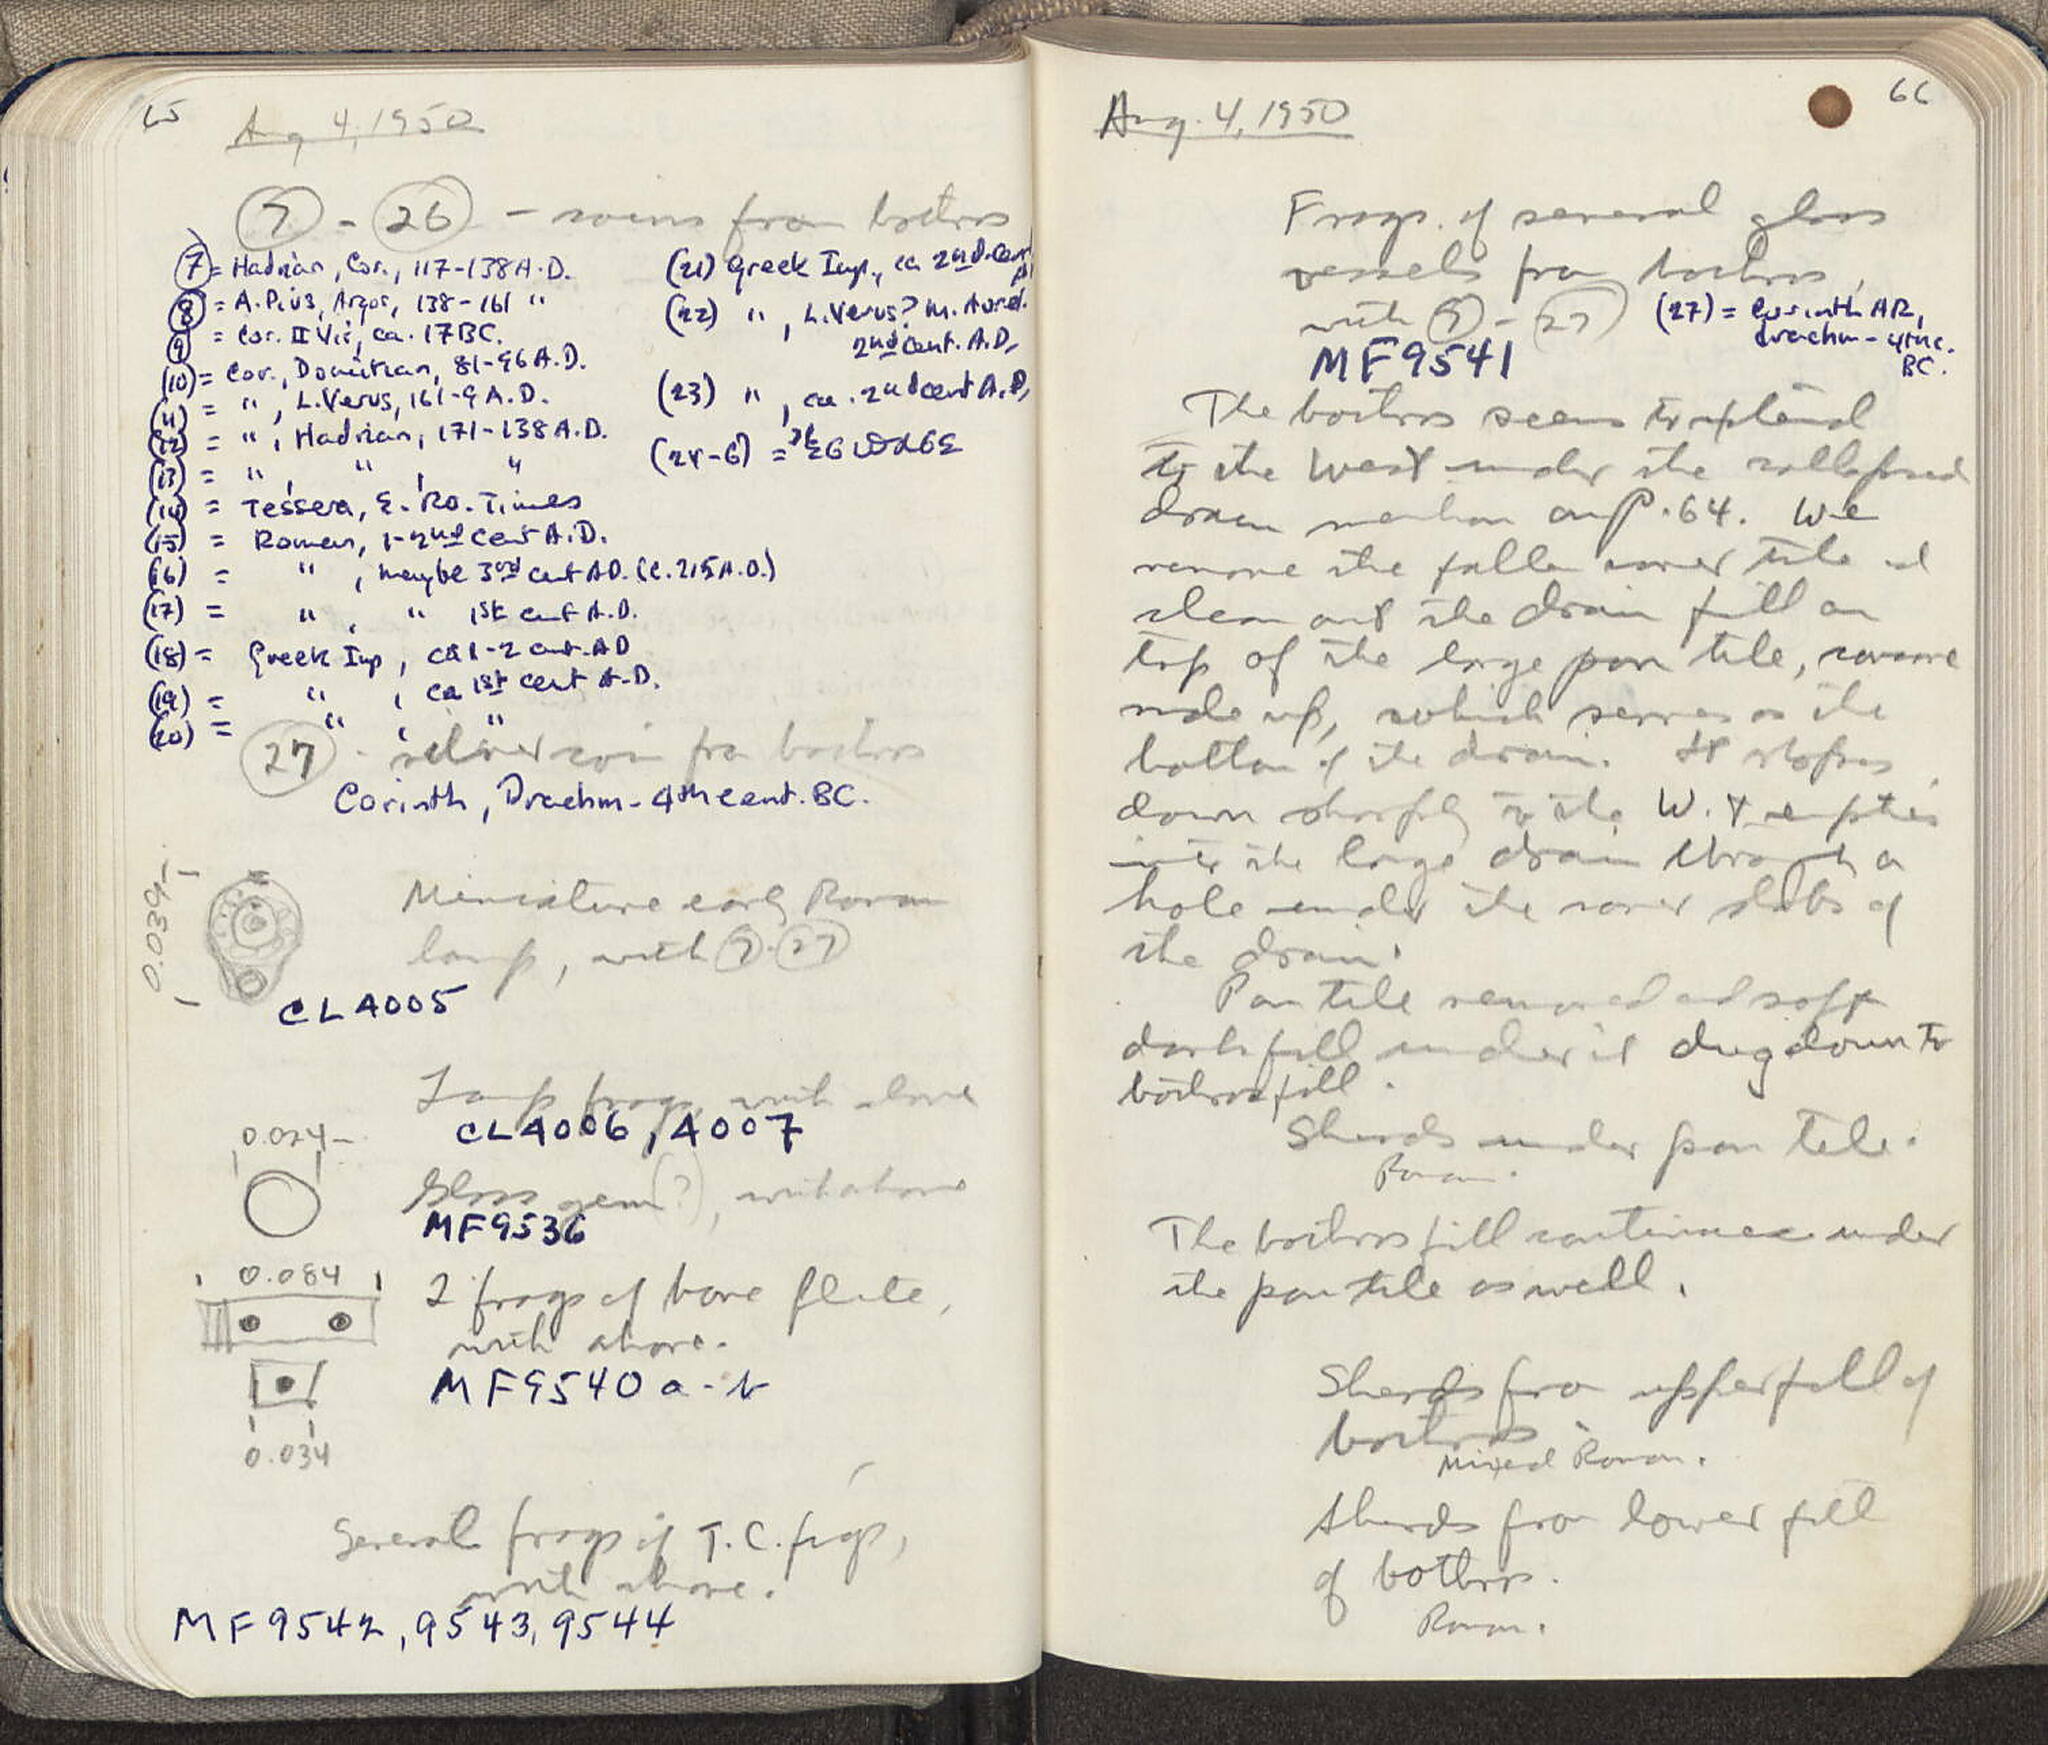 65
Aug 4, 1950
7 - 26 - coins from bothros
7 = Hadrian, Cor., 117-138 A.D.
8 = A. Pius, Argos, 138-161 "
9 = Cor. II Vir, ca. 17 BC.
(10) = Cor., Domitian, 81-96 A.D.
(11) = ", L. Verus, 161-9 A.D.
(12) = ", Hadrian, 171-138 A.D.
(13) = ", ", "
(14) = Tessera, E. Ro. Times
(15) = Roman, 1-2nd cent A.D.
(16) = ", maybe 3rd cent AD. (c. 215 A.D.)
(17) = ", " 1st cent A.D.
(18) = Greek Imp, ca 1-2 cent. AD
(19) = ", ca 1st cent A.D.
(20) = ", "
(21) Greek Imp., ca 2nd cent
(22) ", L. Verus? M. Aurel.
2nd cent. A.D.
(23) ", ca. 2nd cent A.D.
(24-6) =
27 - silver coin from bothros
Corinth, Drachm - 4th cent. BC.
0.039
Miniature early Roman
lamp, with 7-27
CL 4005
Lamp frags, with above
CL 4006, 4007
0.024
Glass gem(?), with above
MF 9536
0.084
2 frags of bone flute,
with above.
MF 9540 a-b
0.034
Several frags of T.C. figs,
with above.
MF 9542, 9543, 9544
66
Aug. 4, 1950
Frags. of several glass
vessels from bothros,
with 7-27
(27) = Corinth AR,
drachm - 4th c.
BC.
MF 9541
The bothros seems to extend
to the West under the collapsed
drain mention on p. 64. We
remove the fallen cover tile and
clean out the drain fill on
top of the large pan tile, concave
side up, which serves as the
bottom of the drain. It slopes
down sharply to the W. & empties
into the large drain through a
hole under the cover slabs of
the drain.
Pan tile removed and soft
dark fill under it dug down to
bothros fill.
Sherds under pan tile.
Roman.
The bothros fill continues under
the pan tile as well.
Sherds from upper fill of
bothros.
Mixed Roman.
Sherds from lower fill
of bothros.
Roman.